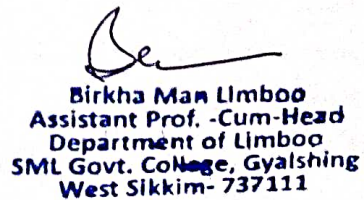 Birkha Man Limboo
Assistant Prof. -Cum-Head
Department of Limboo
SML Govt. College, Gyalshing
West Sikkim- 737111